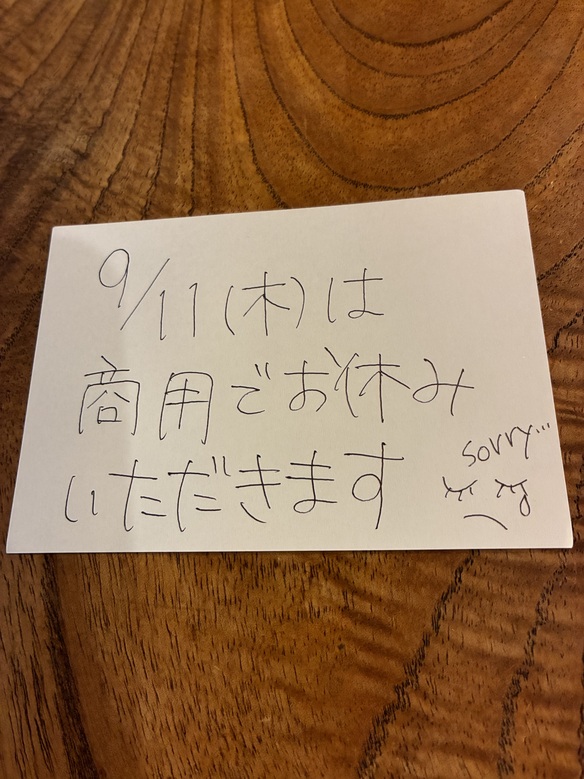 9/11(木)は
商用でお休み
いただきます
sorry...